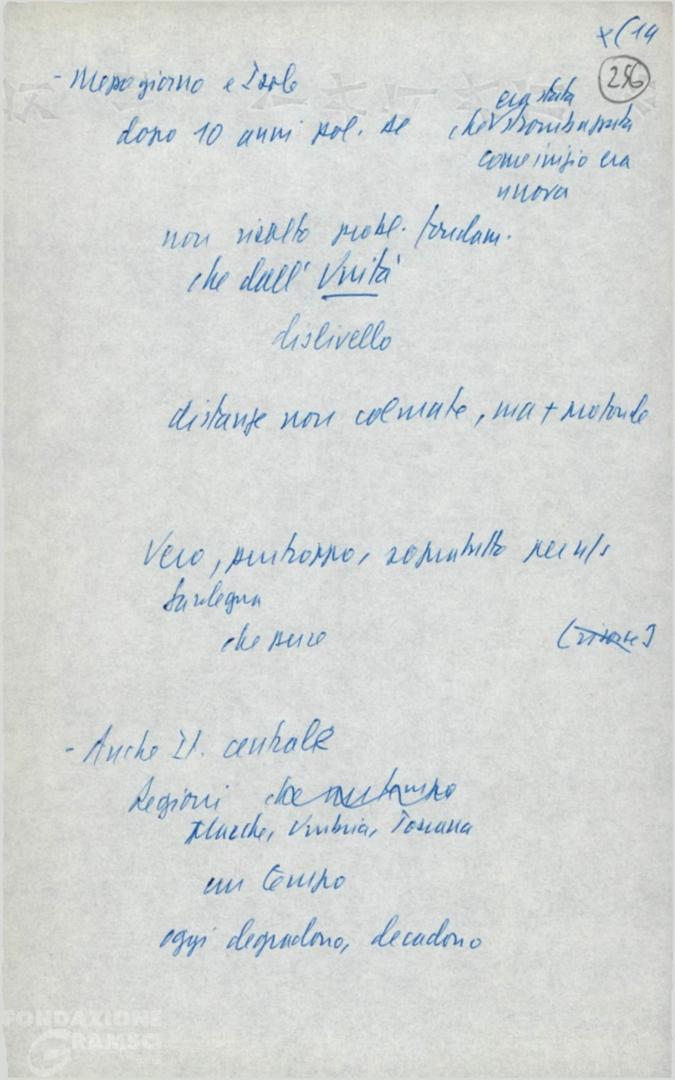 (14
256
- Mezzogiorno e Isole
era stata
dopo 10 anni pol. che strombazzata
come inizio era
nuova
non risolto probl. fondam.
che dall' Unità
dislivello
distanze non colmate, ma + profonde
Vero, purtroppo, soprattutto per
Sardegna
che pure
- Anche It. centrale
Regioni che un tempo
Marche, Umbria, Toscana
un tempo
oggi degradono, decadono
FONDAZIONE
GRAMSCI